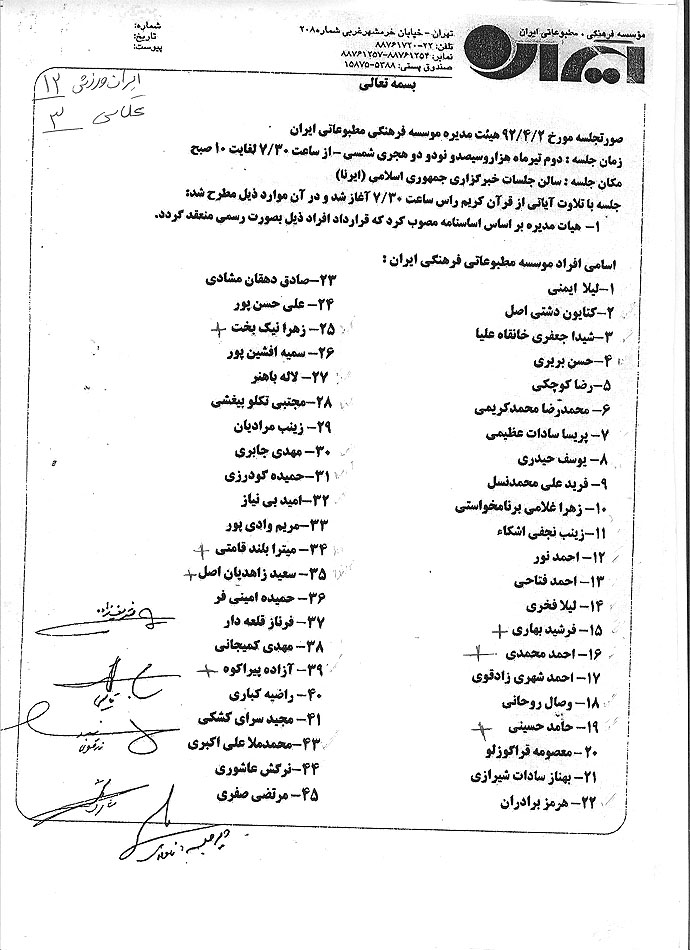 مؤسسه فرهنگی، مطبوعاتی ایران
ایران
تهران - خیابان خرمشهر غربی شماره ۲۰۸
تلفن: ۲۲-۸۸۷۶۱۷۲۰
نمابر: ۸۸۷۶۱۲۵۴-۸۸۷۶۱۲۵۷
صندوق پستی: ۵۳۸۸-۱۵۸۷۵
شماره:
تاریخ:
پیوست:
بسمه تعالی
ایران ورزشی ۱۲
عکاسی ۳
صورتجلسه مورخ ۹۲/۴/۲ هیئت مدیره موسسه فرهنگی مطبوعاتی ایران
زمان جلسه : دوم تیرماه هزاروسیصدو نودو دو هجری شمسی - از ساعت ۷/۳۰ لغایت ۱۰ صبح
مکان جلسه : سالن جلسات خبرگزاری جمهوری اسلامی (ایرنا)
جلسه با تلاوت آیاتی از قرآن کریم راس ساعت ۷/۳۰ آغاز شد و در آن موارد ذیل مطرح شد:
۱- هیات مدیره بر اساس اساسنامه مصوب کرد که قرارداد افراد ذیل بصورت رسمی منعقد گردد.
اسامی افراد موسسه مطبوعاتی فرهنگی ایران :
۱-لیلا ایمنی
۲-کتایون دشتی اصل
۳-شیدا جعفری خانقاه علیا
۴-حسن بربری
۵-رضا کوچکی
۶- محمدرضا محمدکریمی
۷- پریسا سادات عظیمی
۸- یوسف حیدری
۹- فرید علی محمدنسل
۱۰- زهرا غلامی برنامخواستی
۱۱-زینب نجفی اشکاء
۱۲- احمد نور
۱۳- احمد فتاحی
۱۴- لیلا فخری
۱۵- فرشید بهاری +
۱۶- احمد محمدی +
۱۷- احمد شهری زادقوی
۱۸- وصال روحانی
۱۹- حامد حسینی +
۲۰- معصومه قراگوزلو
۲۱- بهناز سادات شیرازی
۲۲- هرمز برادران
۲۳-صادق دهقان مشادی
۲۴- علی حسن پور
۲۵- زهرا نیک بخت +
۲۶- سمیه افشین پور
۲۷- لاله باهنر
۲۸-مجتبی تکلو بیغشی
۲۹- زینب مرادیان
۳۰- مهدی جابری
۳۱-حمیده گودرزی
۳۲-امید بی نیاز
۳۳-مریم وادی پور
۳۴- میترا بلند قامتی +
۳۵- سعید زاهدیان اصل+
۳۶- حمیده امینی فر
۳۷- فرناز قلعه دار
۳۸- مهدی کمیجانی
۳۹- آزاده پیراکوه +
۴۰- راضیه کباری
۴۱- مجید سرای کشکی
۴۳-محمدملا علی اکبری
۴۴-نرگش عاشوری
۴۵- مرتضی صفری